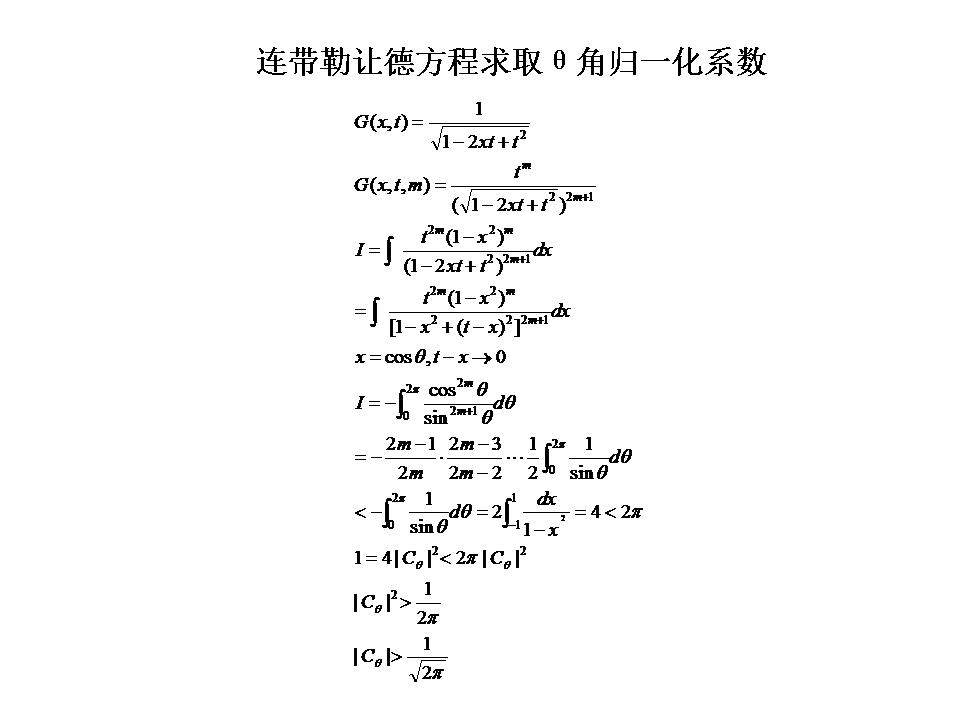 连带勒让德方程求取θ角归一化系数
G(x,t) = \frac{1}{\sqrt{1-2xt+t^2}}
G(x,t,m) = \frac{t^m}{(\sqrt{1-2xt+t^2})^{2m+1}}
I = \int \frac{t^{2m}(1-x^2)^m}{(1-2xt+t^2)^{2m+1}} dx
= \int \frac{t^{2m}(1-x^2)^m}{[1-x^2+(t-x)^2]^{2m+1}} dx
x = \cos θ, t-x → 0
I = -\int_0^{2π} \frac{\cos^{2m} θ}{\sin^{2m+1} θ} dθ
= -\frac{2m-1}{2m} \cdot \frac{2m-3}{2m-2} \cdots \frac{1}{2} \int_0^{2π} \frac{1}{\sin θ} dθ
< -\int_0^{2π} \frac{1}{\sin θ} dθ = 2\int_{-1}^{1} \frac{dx}{1-x^2} = 4 < 2π
1 = 4|C_θ|^2 < 2π|C_θ|^2
|C_θ|^2 > \frac{1}{2π}
|C_θ| > \frac{1}{\sqrt{2π}}